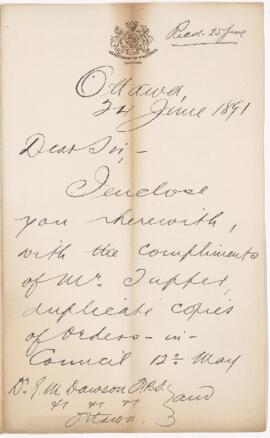 Recd. 25 June
Ottawa,
24 June 1891
Dear Sir,-
I enclose
you herewith,
with the compliments
of Mr. Tupper,
duplicate copies
of Orders-in-
Council 12th May
and
Dr. G. M. Dawson
Ottawa